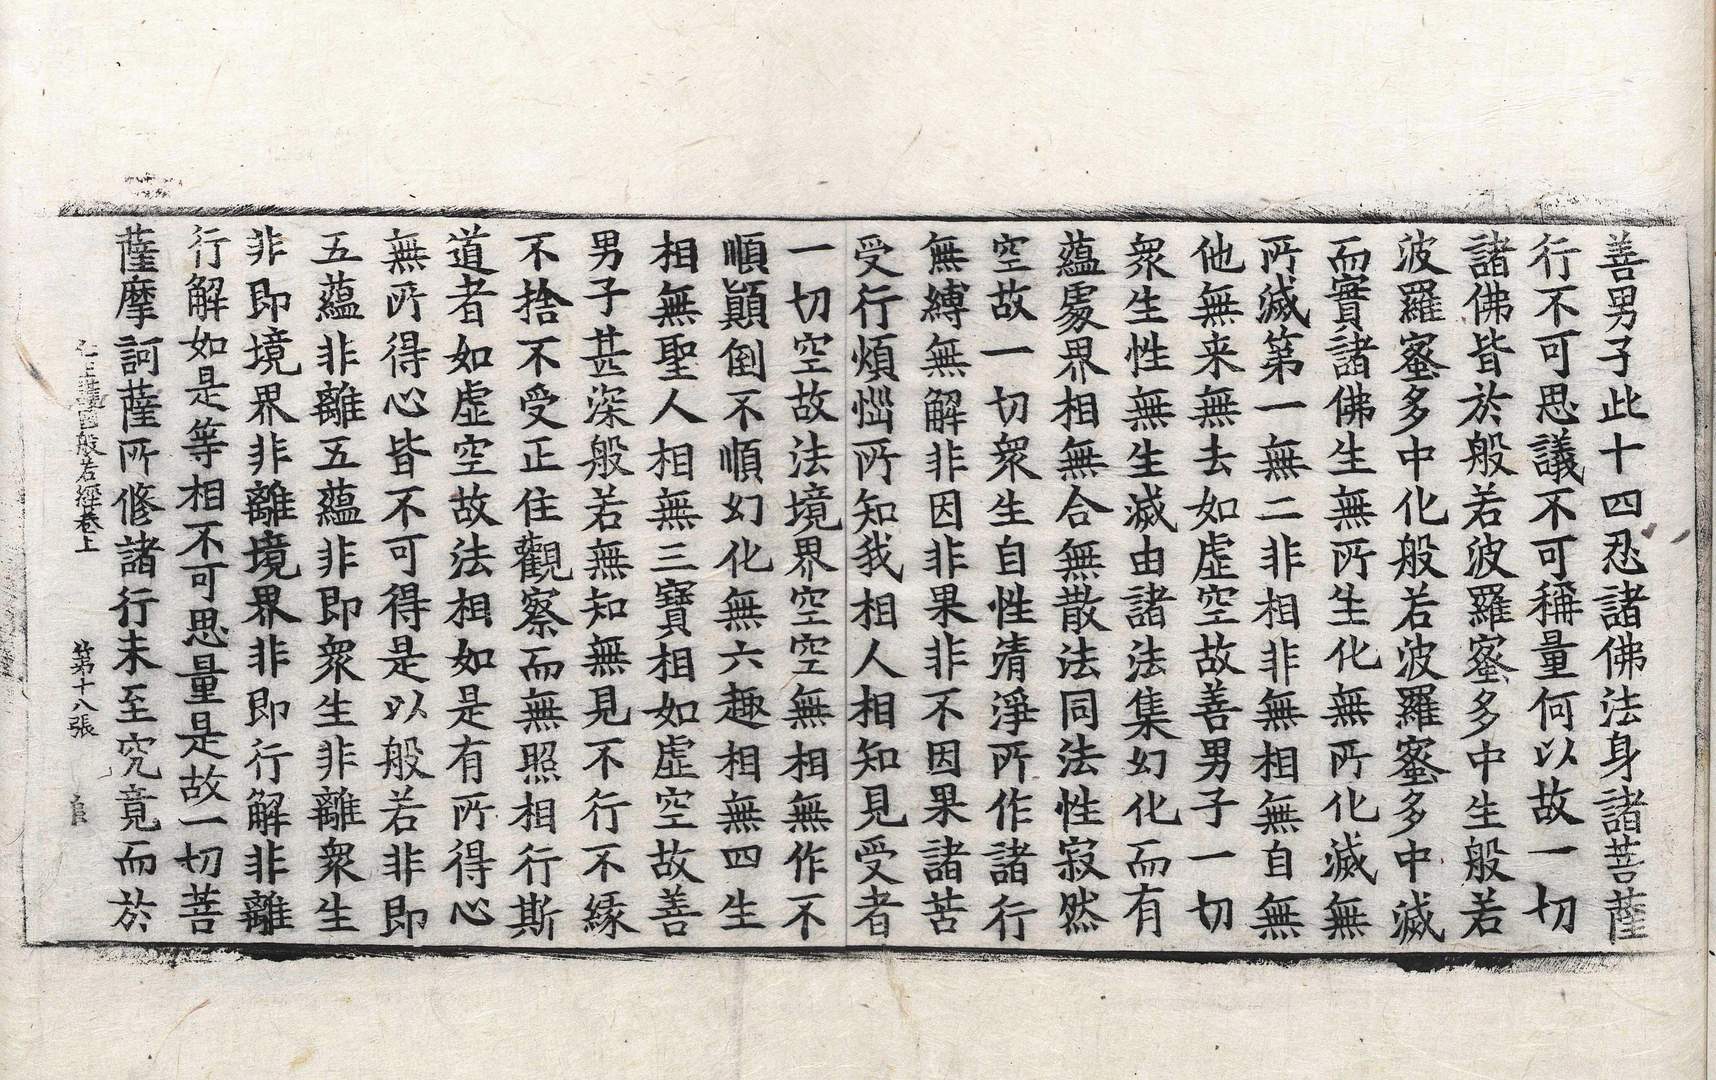 善男子此十四忍諸佛法身諸菩薩
行不可思議不可稱量何以故一切
諸佛皆於般若波羅蜜多中生般若
波羅蜜多中化般若波羅蜜多中滅
而實諸佛生無所生化無所化滅無
所滅第一無二非相非無相無自無
他無来無去如虛空故善男子一切
衆生性無生滅由諸法集幻化而有
蘊處界相無合無散法同法性寂然
空故一切衆生自性清淨所作諸行
無縛無解非因非果非不因果諸苦
受行煩惱所知我相人相知見受者
一切空故法境界空空無相無作不
順顚倒不順幻化無六趣相無四生
相無聖人相無三寶相如虛空故善
男子甚深般若無知無見不行不緣
不捨不受正住觀察而無照相行斯
道者如虛空故法相如是有所得心
無所得心皆不可得是以般若非即
五蘊非離五蘊非即衆生非離衆生
非即境界非離境界非即行解非離
行解如是等相不可思量是故一切菩
薩摩訶薩所修諸行未至究竟而於
仁王護國般若經卷上 第十八張